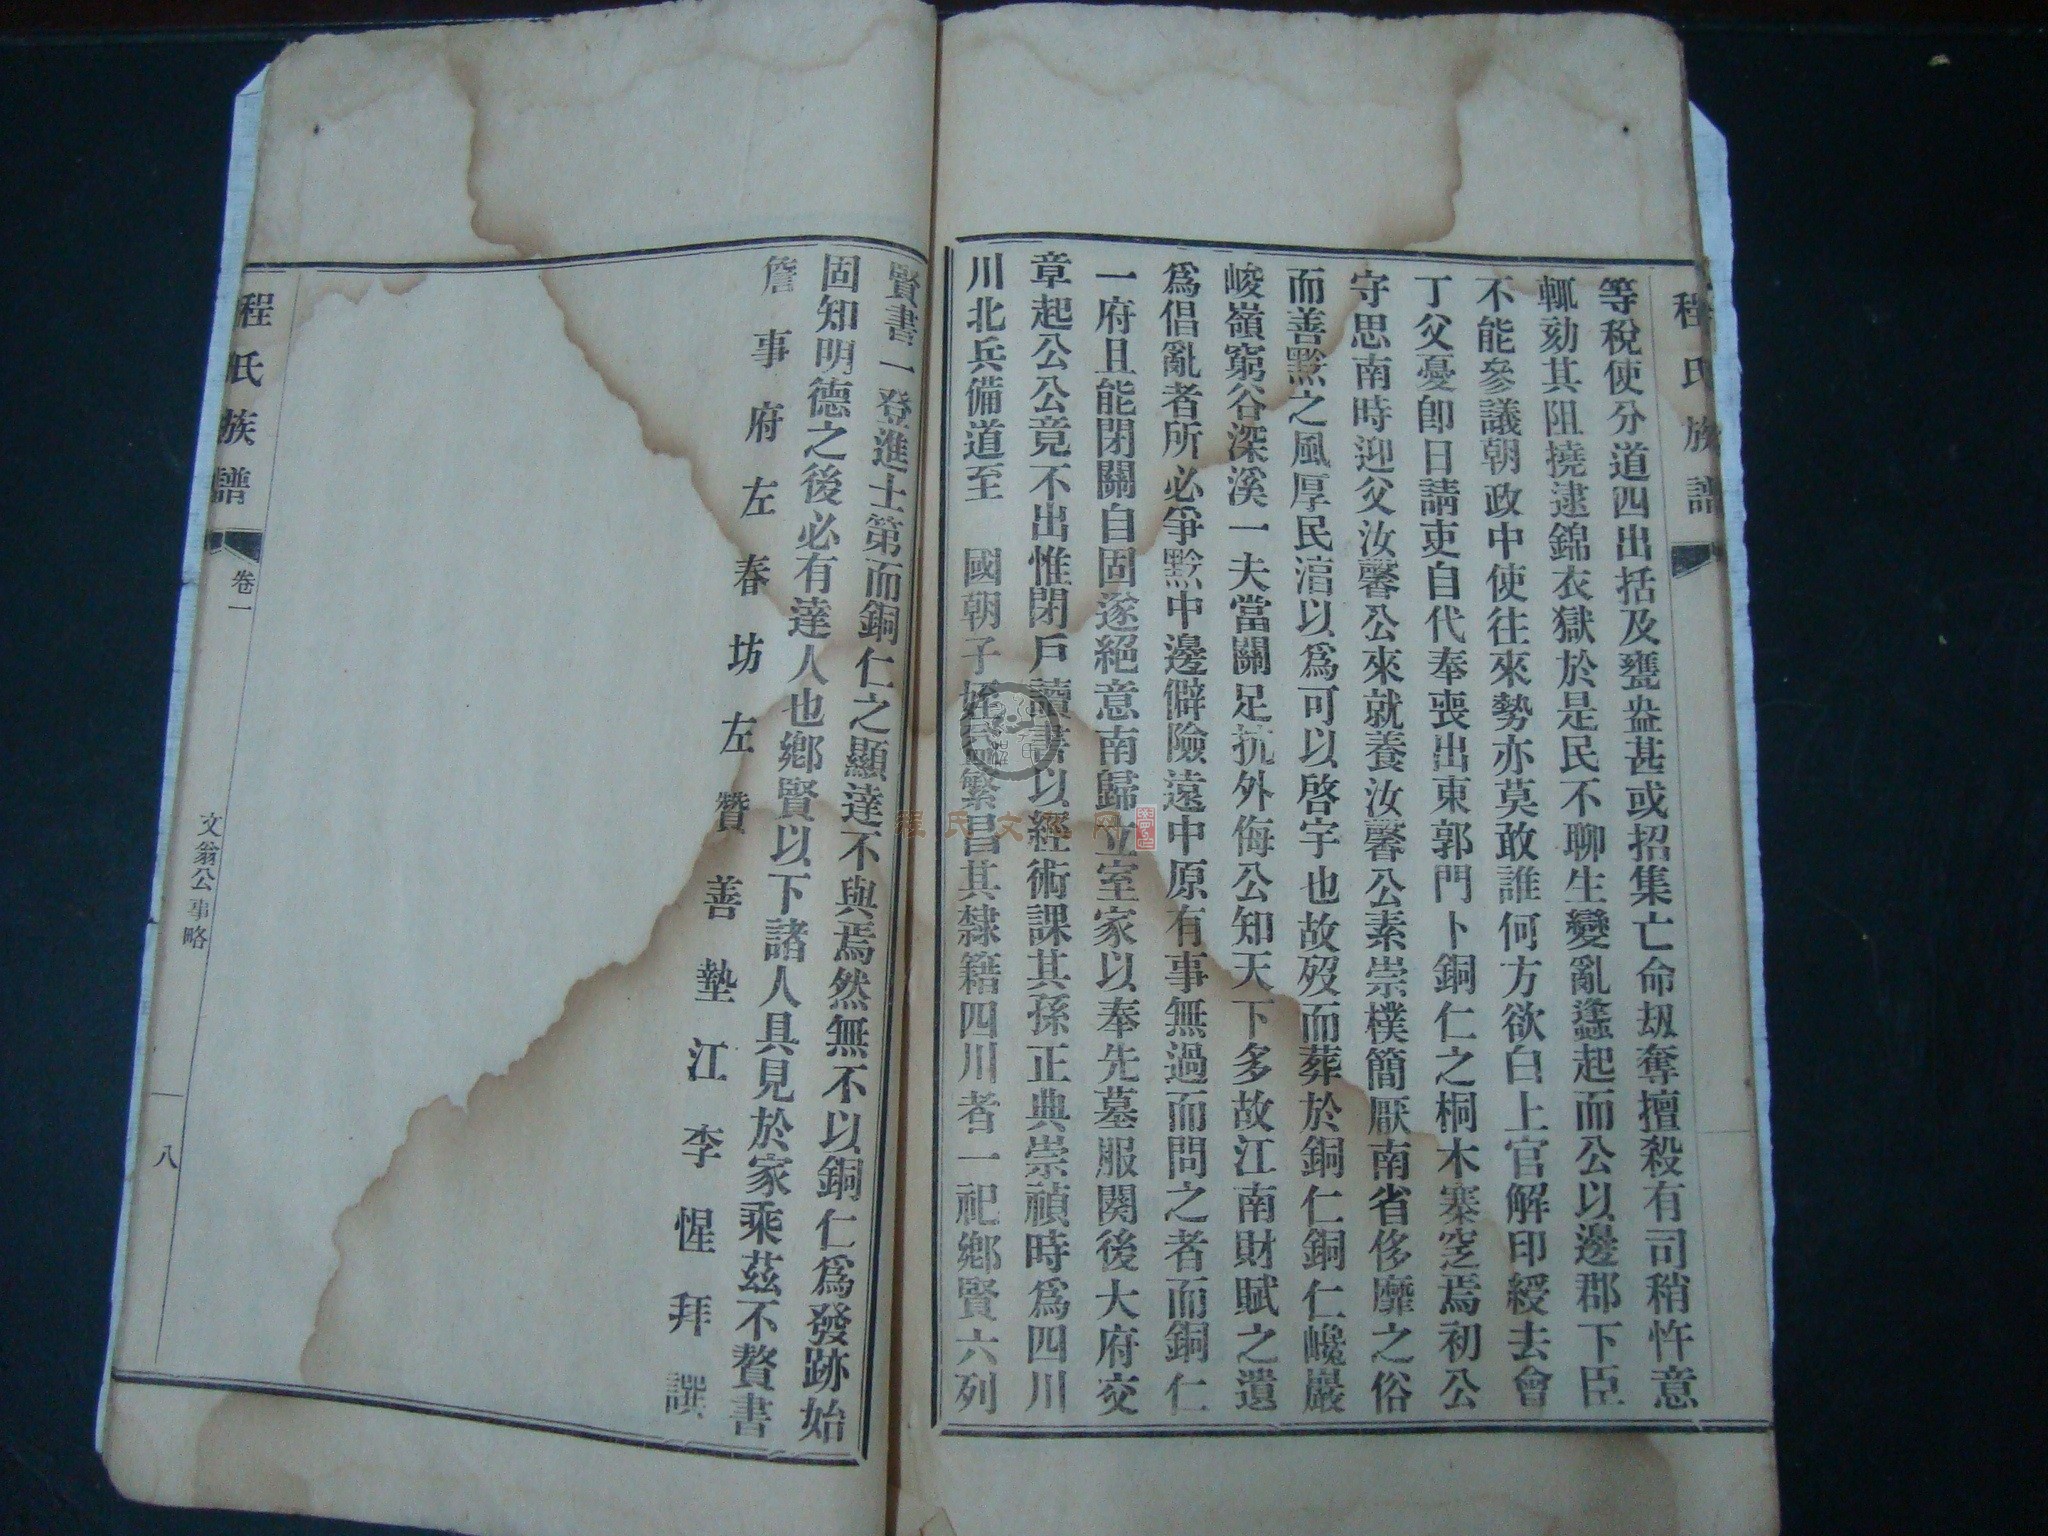 程氏族譜
等稅使分道四出括及甕盎甚或招集亡命刼奪擅殺有司稍忤意
輒劾其阻撓逮錦衣獄於是民不聊生變亂蠭起而公以邊郡下臣
不能參議朝政中使往來勢亦莫敢誰何方欲白上官解印綬去會
丁父憂卽日請吏自代奉喪出東郭門卜銅仁之桐木寨窆焉初公
守思南時迎父汝馨公來就養汝馨公素崇樸簡厭南省侈靡之俗
而善黔之風厚民湻以爲可以啓宇也故歿而葬於銅仁銅仁巉巖
峻嶺窮谷深溪一夫當關足抗外侮公知天下多故江南財賦之遺
爲倡亂者所必爭黔中邊僻險遠中原有事無過而問之者而銅仁
一府且能閉關自固遂絕意南歸立室家以奉先墓服闋後大府交
章起公公竟不出惟閉戶讀書以經術課其孫正典崇禎時爲四川
川北兵備道至　國朝子姪益繁昌其隸籍四川者一祀鄉賢六列
賢書一登進士第而銅仁之顯達不與焉然無不以銅仁爲發跡始
固知明德之後必有達人也鄉賢以下諸人具見於家乘茲不贅書
詹事府左春坊左贊善墊江李惺拜譔
程氏族譜
卷一
文翁公事略
八
程氏文化网